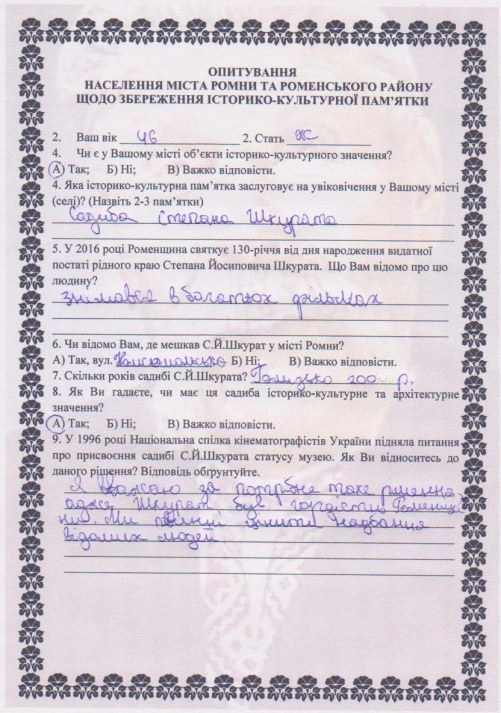 ОПИТУВАННЯ
НАСЕЛЕННЯ МІСТА РОМНИ ТА РОМЕНСЬКОГО РАЙОНУ
ЩОДО ЗБЕРЕЖЕННЯ ІСТОРИКО-КУЛЬТУРНОЇ ПАМ'ЯТКИ
2. Ваш вік 46 2. Стать Ж
4. Чи є у Вашому місті об'єкти історико-культурного значення?
А) Так; Б) Ні; В) Важко відповісти.
4. Яка історико-культурна пам'ятка заслуговує на увіковічення у Вашому місті
(селі)? (Назвіть 2-3 пам'ятки)
Садиба Степана Шкурата
5. У 2016 році Роменщина святкує 130-річчя від дня народження видатної
постаті рідного краю Степана Йосиповича Шкурата. Що Вам відомо про цю
людину?
знімався в багатьох фільмах
6. Чи відомо Вам, де мешкав С.Й.Шкурат у місті Ромни?
А) Так, вул. Комсомольська Б) Ні; В) Важко відповісти.
7. Скільки років садибі С.Й.Шкурата? Близько 100 р.
8. Як Ви гадаєте, чи має ця садиба історико-культурне та архітектурне
значення?
А) Так; Б) Ні; В) Важко відповісти.
9. У 1996 році Національна спілка кінематографістів України підняла питання
про присвоєння садибі С.Й.Шкурата статусу музею. Як Ви відноситесь до
даного рішення? Відповідь обґрунтуйте.
Я вважаю за потрібне таке рішення,
адже Шкурат був гордістю Роменщи
ни. Ми повинні цінити надбання
відомих людей